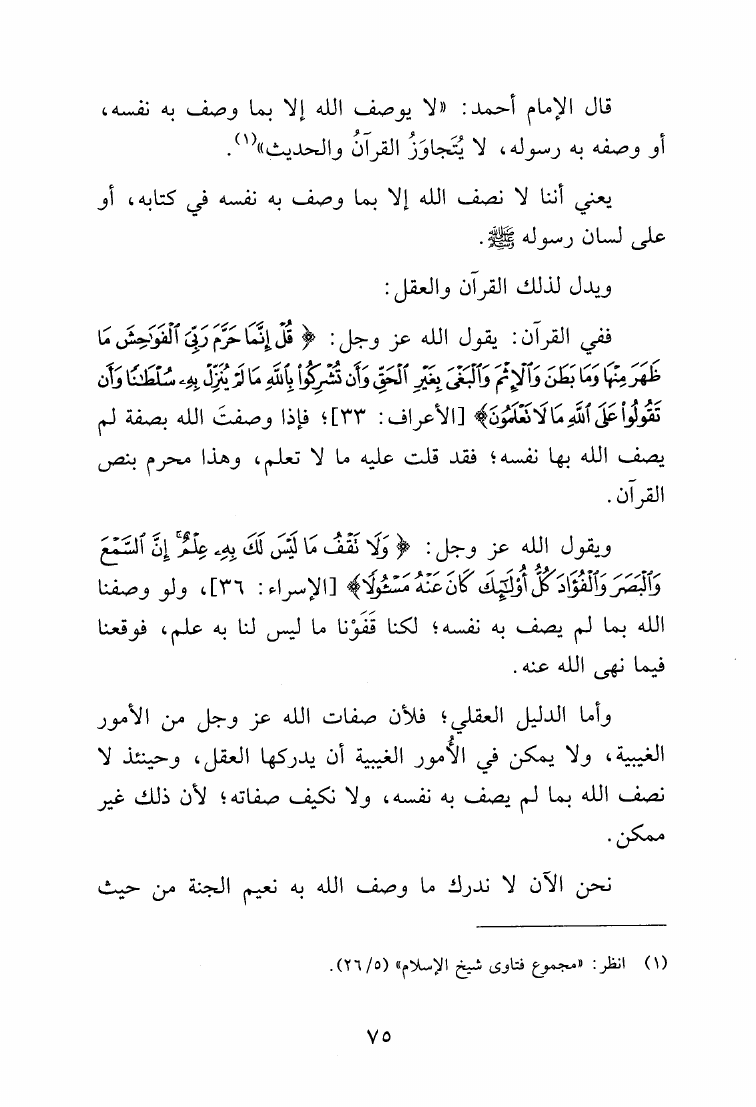 قال الإمام أحمد: «لا يوصف الله إلا بما وصف به نفسه،
أو وصفه به رسوله، لا يُتَجاوَزُ القرآنُ والحديث»(١).
يعني أننا لا نصف الله إلا بما وصف به نفسه في كتابه، أو
على لسان رسوله ﷺ.
ويدل لذلك القرآن والعقل:
ففي القرآن: يقول الله عز وجل: ﴿ قُلْ إِنَّمَا حَرَّمَ رَبِّيَ ٱلْفَوَٰحِشَ مَا
ظَهَرَ مِنْهَا وَمَا بَطَنَ وَٱلْإِثْمَ وَٱلْبَغْىَ بِغَيْرِ ٱلْحَقِّ وَأَن تُشْرِكُوا۟ بِٱللَّهِ مَا لَمْ يُنَزِّلْ بِهِۦ سُلْطَٰنًا وَأَن
تَقُولُوا۟ عَلَى ٱللَّهِ مَا لَا نَعْلَمُونَ﴾ [الأعراف: ٣٣]؛ فإذا وصفتَ الله بصفة لم
يصف الله بها نفسه؛ فقد قلت عليه ما لا تعلم، وهذا محرم بنص
القرآن.
ويقول الله عز وجل: ﴿ وَلَا نَقْفُ مَا لَيْسَ لَكَ بِهِۦ عِلْمٌ ۚ إِنَّ ٱلسَّمْعَ
وَٱلْبَصَرَ وَٱلْفُؤَادَ كُلُّ أُو۟لَٰٓئِكَ كَانَ عَنْهُ مَسْـُٔولًا﴾ [الإسراء: ٣٦]، ولو وصفنا
الله بما لم يصف به نفسه؛ لكنا قَفَوْنا ما ليس لنا به علم، فوقعنا
فيما نهى الله عنه.
وأما الدليل العقلي؛ فلأن صفات الله عز وجل من الأمور
الغيبية، ولا يمكن في الأُمور الغيبية أن يدركها العقل، وحينئذ لا
نصف الله بما لم يصف به نفسه، ولا نكيف صفاته؛ لأن ذلك غير
ممكن.
نحن الآن لا ندرك ما وصف الله به نعيم الجنة من حيث
(١) انظر: «مجموع فتاوى شيخ الإسلام» (٢٦/٥).
٧٥